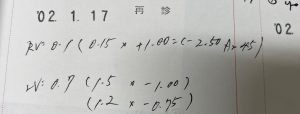 '02. 1. 17 再診
RV: 0.1 (0.15 × +1.00 = C-2.50 Ax45)
LV: 0.7 (1.5 × -1.00)
(1.2 × -0.75)
'02.